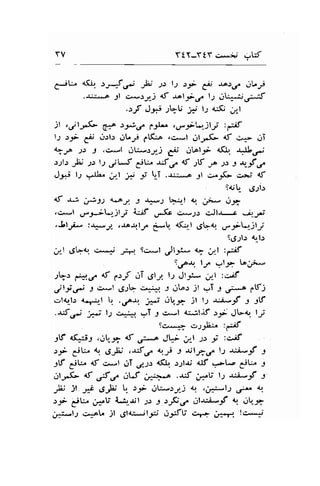 کتاب نخست ۳۴۳-۳۴۲ ۳۷
فرمان می‌دهد نفع خود را در نظر نمی‌گیرد بلکه منافع
کشتی‌نشینان را می‌خواهد که زیردست او هستند.
این نکته را نیز ناچار قبول کرد.
گفتم: ترازیماخوس، معلوم می‌شود هیچ حکمرانی، از
آن حیث که حکمران است، هنگام فرمان دادن نفع خود را
نمی‌طلبد بلکه خواهان نفع زیردستان است. و در هرچه
می‌گوید و در هر کار که می‌کند منافع کسانی را در نظر دارد
که تحت حکومت او هستند. آیا تو نیز این مطلب را قبول
داری یانه؟
چون سخن به اینجا رسید و برهمه روشن شد که
تعریف عدالت درست عکس گفتهٔ ترازیماخوس است،
ترازیماخوس به‌جای اینکه پاسخ مرا بدهد، پرسید: سقراط،
دایه داری؟
گفتم: این چه سئوالی است؟ بهتر نیست به‌جای این
سخن‌ها جواب مرا بدهی؟
گفت: این سئوال را برای آن کردم که می‌بینم دچار
زکام هستی و آب از دهان و بینیت جاری است و نمی‌توانی
گاو و گوسفند را از چوپان تمیز بدهی. با اینهمه دایه‌ات
ترا به‌حال خود گذاشته است و آب بینیت را تمیز نمی‌کند.
گفتم: منظورت چیست؟
گفت: تو در این خیال هستی که چوپان، وقتیکه گاو
و گوسفند را می‌چراند و فربه می‌کند، نظری به منافع خود
و منافع صاحب گله ندارد بلکه درپی آن است که منافع گاو
و گوسفند را تامین کند. همچنین گمان می‌کنی که حکمران
به معنی راستین، به زیردستان خود با نظری غیر از نظر
چوپان به گوسفندان می‌نگرد و در اندیشهٔ تامین منافع خود
نیست؛ بهمین جهت تاکنون نتوانسته‌ای از ماهیت راستین